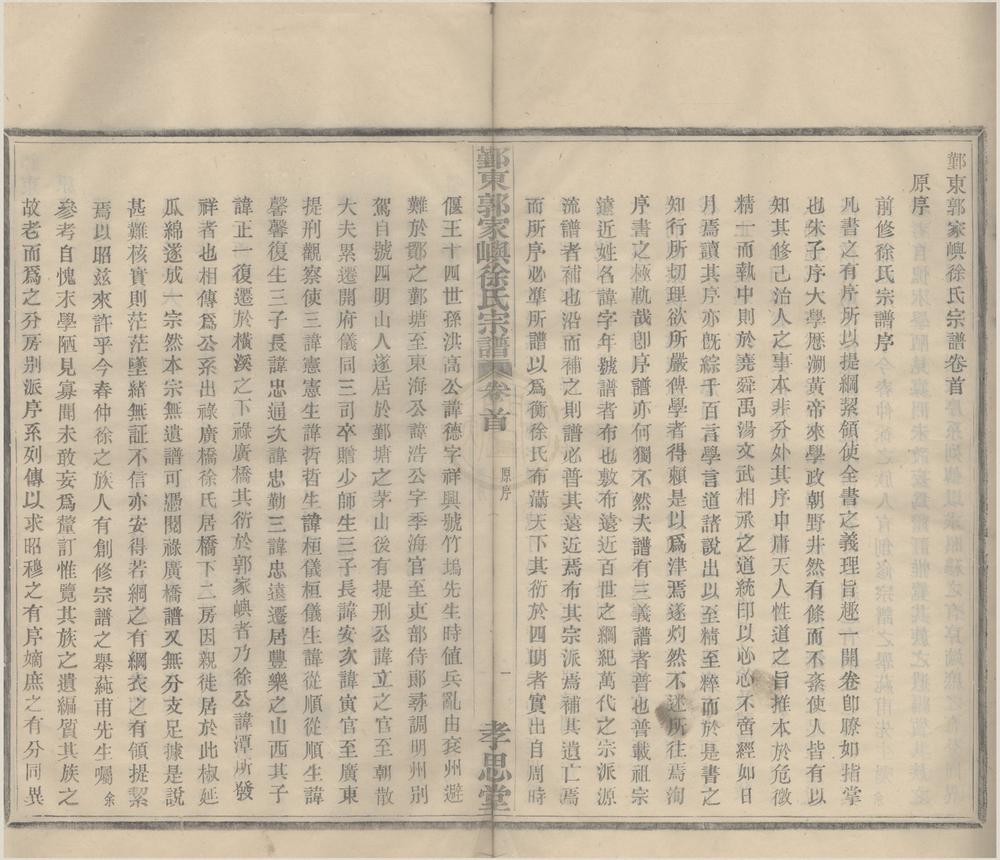 鄞東郭家嶼徐氏宗譜卷首
原序
前修徐氏宗譜序
凡書之有序所以提綱絜領使全書之義理旨趣一開卷卽瞭如指掌
也朱子序大學歷溯黃帝來學政朝野井然有條而不紊使人皆有以
知其修己治人之事本非分外其序中庸天人性道之旨推本於危微
精一而執中則於堯舜禹湯文武相承之道統印以心心不啻經如日
月焉讀其序亦旣綜千百言學言道諸說出以至精至粹而於是書之
知行所切理欲所嚴俾學者得賴是以爲津焉遂灼然不迷所往焉洵
序書之極軌哉卽序譜亦何獨不然夫譜有三義譜者普也普載祖宗
遠近姓名諱字年號譜者布也敷布遠近百世之綱紀萬代之宗派源
流譜者補也沿而補之則譜必普其遠近焉布其宗派焉補其遺亡焉
而所序必準所譜以爲衡徐氏布滿天下其衍於四明者實出自周時
鄞東郭家嶼徐氏宗譜 卷首 原序 一 孝思堂
偃王十四世孫洪高公諱德字祥興號竹塢先生時値兵亂由兗州避
難於鄮之鄞塘至東海公諱浩公字季海官至吏部侍郞尋調明州別
駕自號四明山人遂居於鄞塘之茅山後有提刑公諱立之官至朝散
大夫累遷開府儀同三司卒贈少師生三子長諱安次諱寅官至廣東
提刑觀察使三諱憲憲生諱哲哲生諱桓儀桓儀生諱從順從順生諱
馨馨復生三子長諱忠逼次諱忠勤三諱忠遠遷居豐樂之山西其子
諱正一復遷於橫溪之下祿廣橋其衍於郭家嶼者乃徐公諱潭所發
祥者也相傳爲公系出祿廣橋徐氏居橋下二房因親徙居於此椒延
瓜綿遂成一大宗然本宗無遺譜可憑閱祿廣橋譜又無分支足據是說
甚難核實則茫茫墜緒無証不信亦安得若網之有綱衣之有領提絜
焉以昭茲來許乎今春仲徐之族人有創修宗譜之舉蒓甫先生囑余
參考自愧末學陋見寡聞未敢妄爲釐訂惟覽其族之遺編質其族之
故老而爲之分房別派序系列傳以求昭穆之有序嫡庶之有分同異